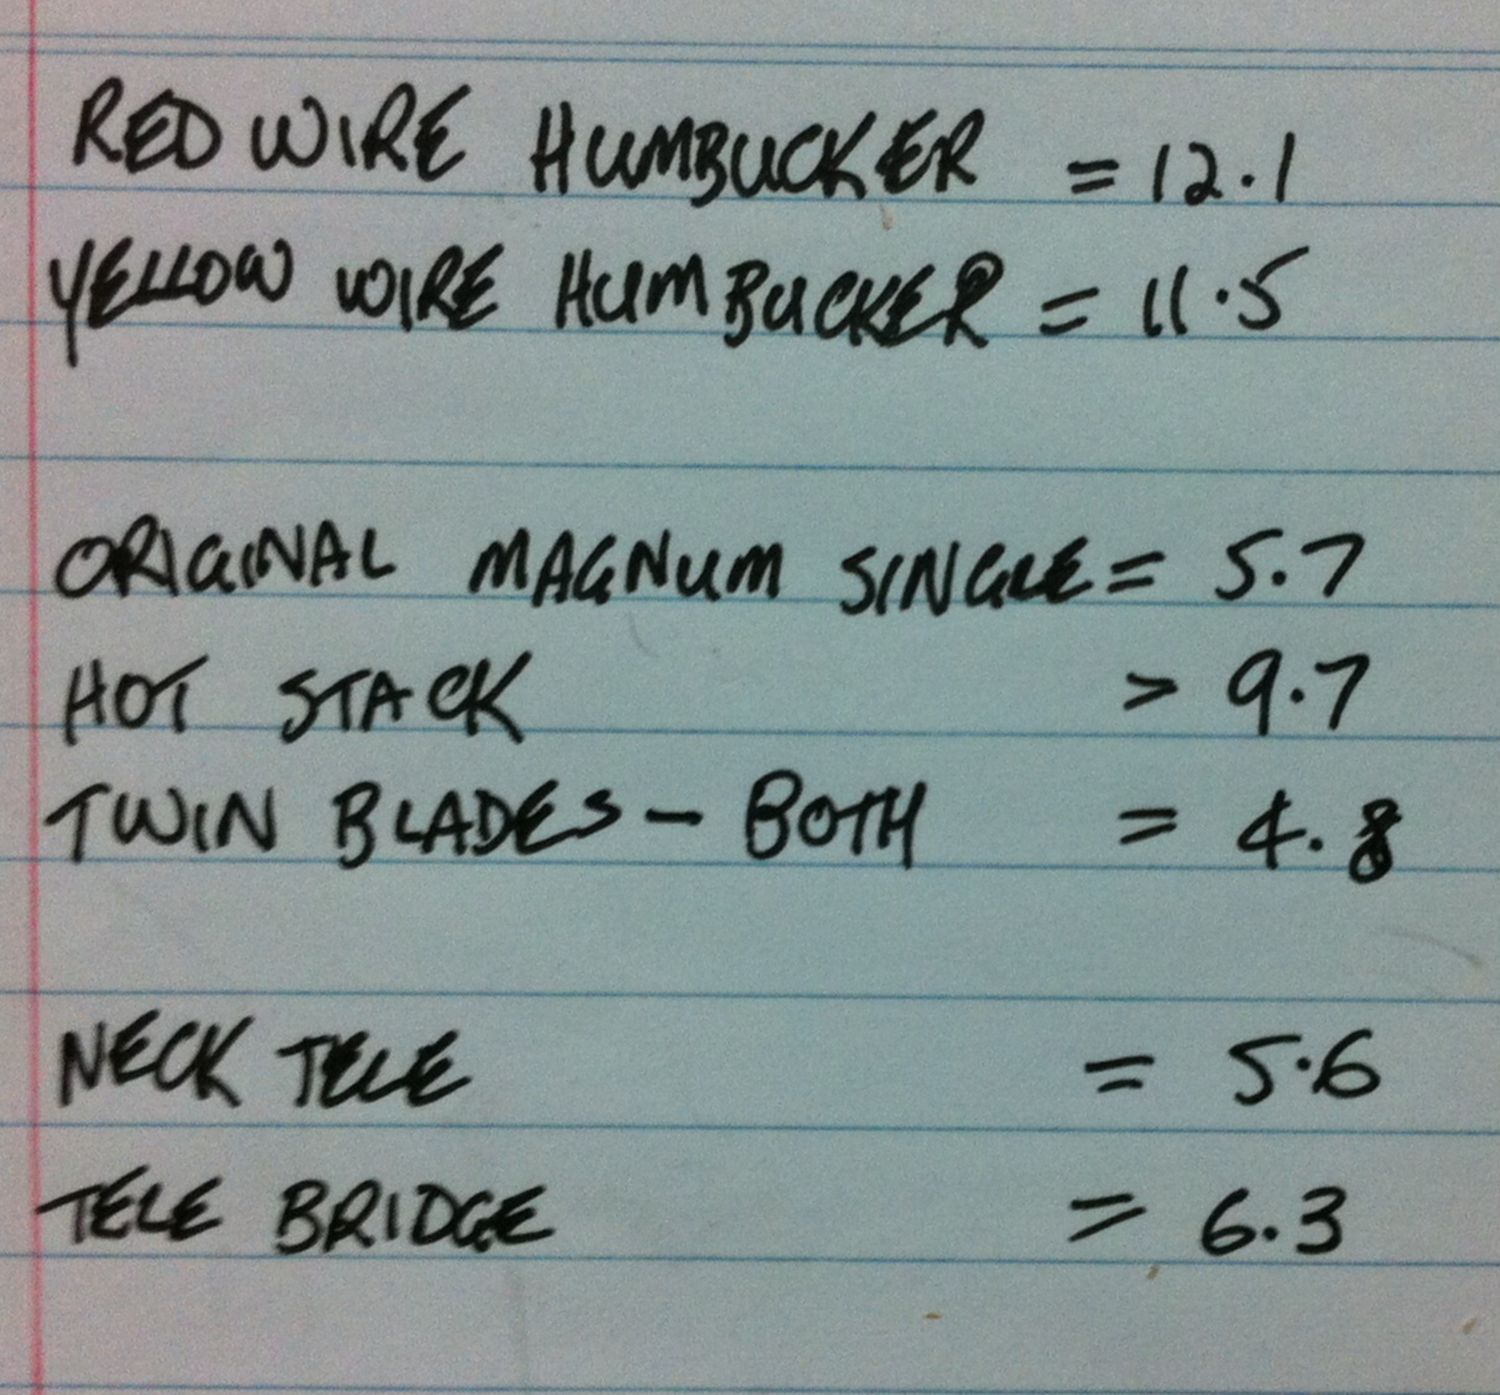 RED WIRE HUMBUCKER = 12.1
YELLOW WIRE HUMBUCKER = 11.5
ORIGINAL MAGNUM SINGLE = 5.7
HOT STACK > 9.7
TWIN BLADES - BOTH = 4.8
NECK TELE = 5.6
TELE BRIDGE = 6.3